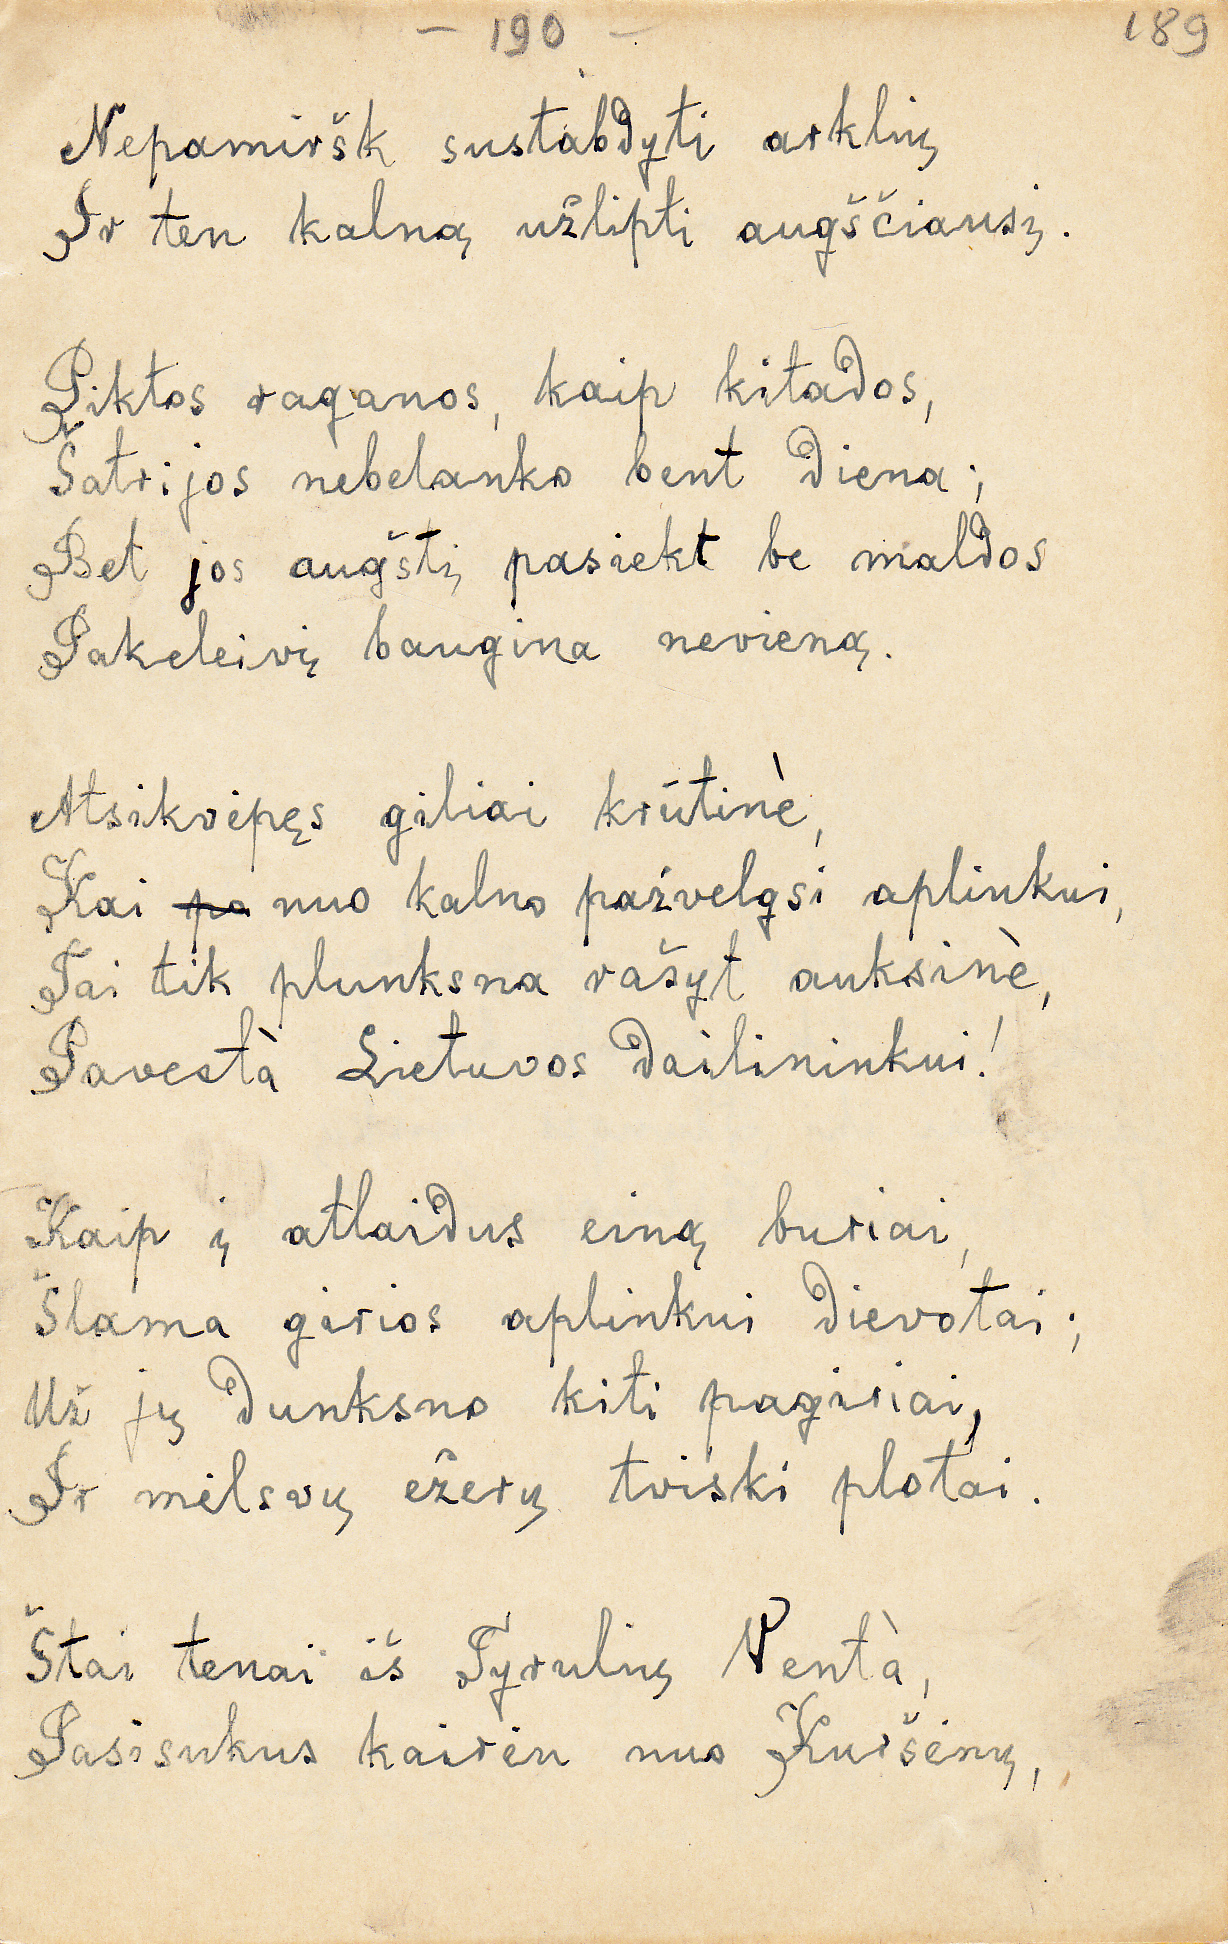 – 190 –
189
Nepamiršk sustabdyti arklių
Ir ten kalną užlipti augščiausį.
Piktos raganos, kaip kitados,
Šatrijos nebelanko bent diena;
Bet jos augštį pasiekt be maldos
Pakeleivį baugina nevieną.
Atsikvėpęs giliai krūtinè,
Kai po nuo kalno pažvelgsi aplinkui,
Tai tik plunksna rašyt auksinè,
Pavestà Lietuvos dailininkui!
Kaip į atlaidus einą buriai,
Šlama girios aplinkui dievotai;
Už jų dunksno kiti pagiriai,
Ir mėlsvų ežerų tviski plotai.
Štai tenai iš Tyrulių Ventà,
Pasisukus kairėn nuo Kuršėnų,